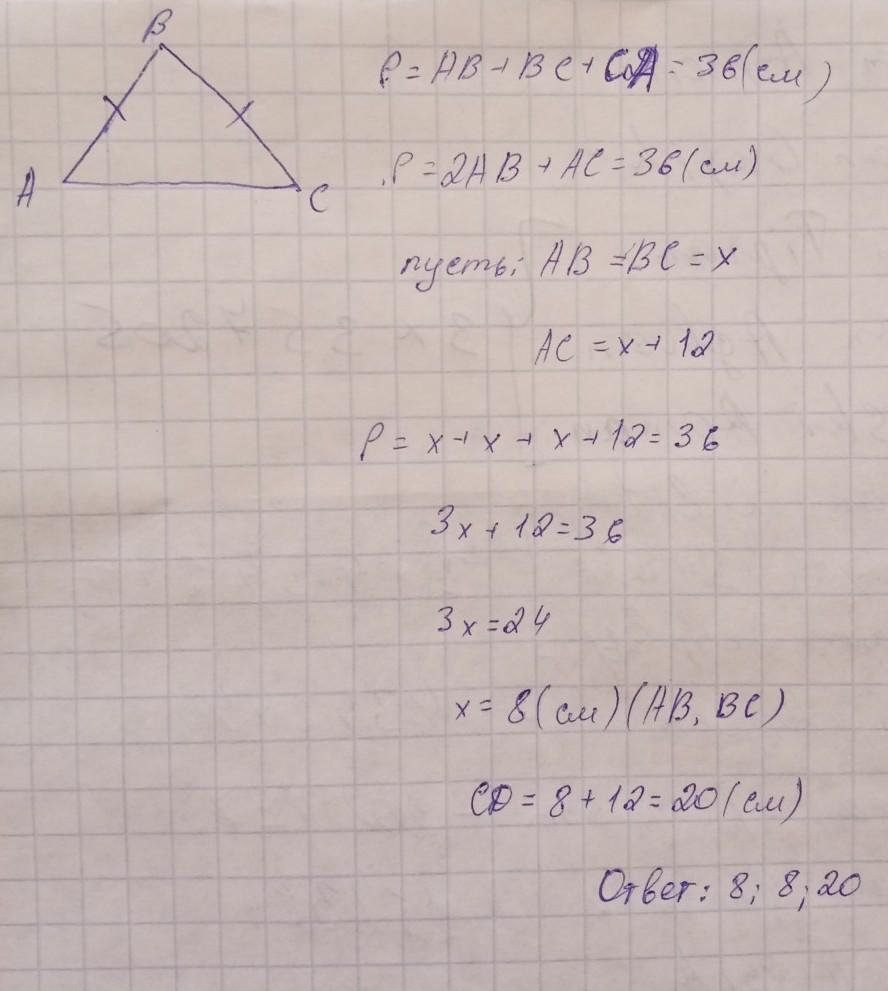 B
A
C
P = AB + BC + CA = 36 (см)
P = 2AB + AC = 36 (см)
пусть: AB = BC = x
AC = x + 12
P = x + x + x + 12 = 36
3x + 12 = 36
3x = 24
x = 8 (см) (AB, BC)
CD = 8 + 12 = 20 (см)
Ответ: 8; 8; 20